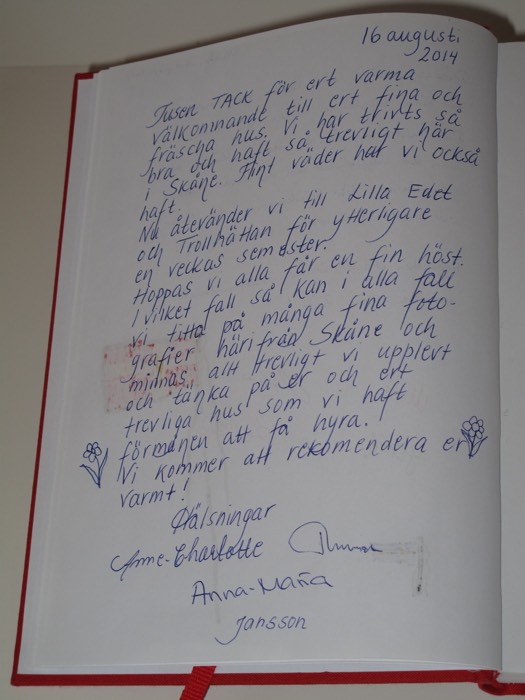 16 augusti
2014
Tusen TACK för ert varma
välkommande till ert fina och
fräscha hus. Vi har trivts så
bra och haft så trevligt här
i Skåne. Fint väder har vi också
haft.
Nu återvänder vi till Lilla Edet
och Trollhättan för ytterligare
en veckas semester.
Hoppas vi alla får en fin höst.
I vilket fall så kan i alla fall
vi titta på många fina foto-
grafier härifrån Skåne och
minnas allt trevligt vi upplevt
och tänka på er och ert
trevliga hus som vi haft
förmånen att få hyra.
Vi kommer att rekomendera er
varmt!
Hälsningar
Anne-Charlotte
Anna-Maria
Jansson